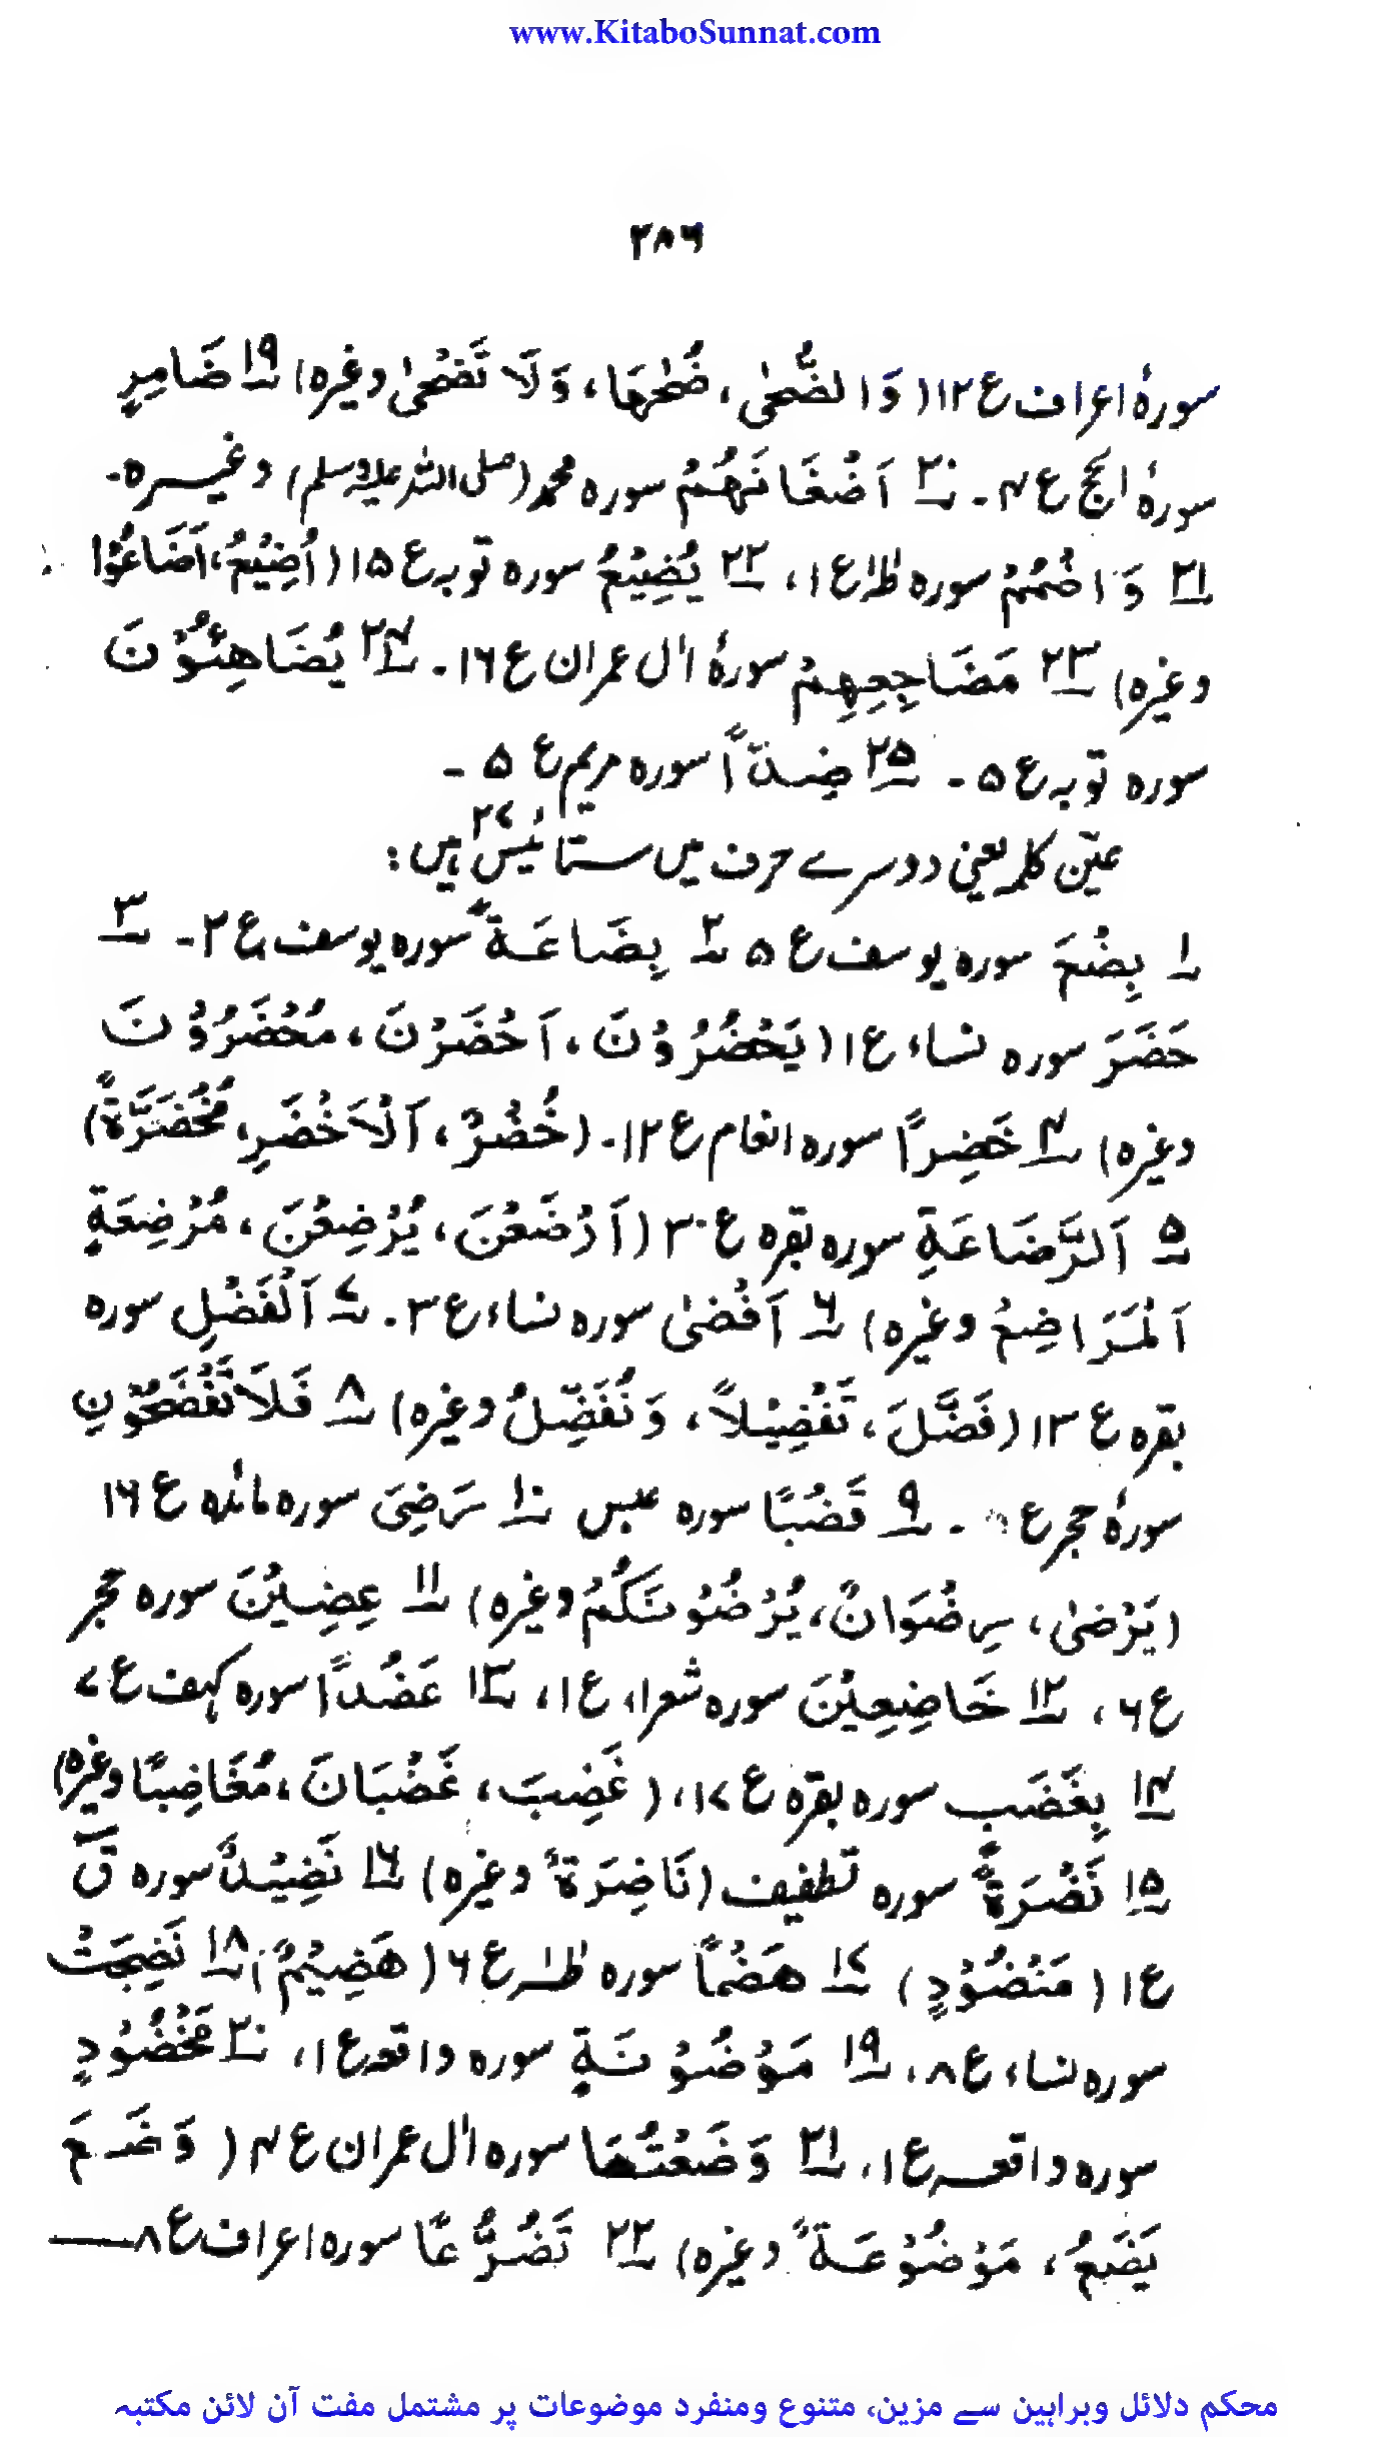 www.KitaboSunnat.com
۳۸۶
سورۂ اعراف ع ۱۲ (وَالضُّحٰی، ضُحٰہَا، وَلَا تَضْحٰی وغیرہ) ۱۹ ضَامِرٍ
سورۂ الحج ع ۴۔ ۲۰ اَضْغَانَہُمْ سورہ محمد (صلی اللہ علیہ وسلم) وغیرہ۔
۲۱ وَاضْمُمْ سورہ طٰہٰ ع ۱، ۲۲ یُضِیْعُ سورہ توبہ ع ۱۵ (اُضِیْعُ، اَضَاعُوْا
وغیرہ) ۲۳ مَضَاجِعِہِمْ سورۂ اٰل عمران ع ۱۶۔ ۲۴ یُضَاہِئُوْنَ
سورہ توبہ ع ۵۔ ۲۵ ضِدًّا سورہ مریم ع ۵۔
عین کلمہ یعنی دوسرے حرف میں ستائیس ۲۷ ہیں:
۱ بِضْعَ سورہ یوسف ع ۵ ۲ بِضَاعَةً سورہ یوسف ع ۲۔ ۳
حَضَرَ سورہ نساء ع ۱ (یَحْضُرُوْنَ، اَحْضَرْنَ، مُحْضَرُوْنَ
وغیرہ) ۴ خَضِرًا سورہ انعام ع ۱۲۔ (خُضْرٌ، اَلْاَخْضَرِ، مُخْضَرَّةً)
۵ اَلرَّضَاعَةِ سورہ بقرہ ع ۳۰ (اَرْضَعْنَ، یُرْضِعْنَ، مُرْضِعَةٍ
اَلْمَرَاضِعُ وغیرہ) ۶ اَفْضٰی سورہ نساء ع ۳۔ ۷ اَلْفَضْلِ سورہ
بقرہ ع ۱۳ (فَضَّلَ، تَفْضِیْلًا، وَنُفَضِّلُ وغیرہ) ۸ فَلَا تَفْضَحُوْنِ
سورۂ حجر ع ۔ ۹ قَضْبًا سورہ عبس ۱۰ رَضِیَ سورہ مائدہ ع ۱۶
(یَرْضٰی، رِضْوَانٌ، یُرْضُوْنَکُمْ وغیرہ) ۱۱ عِضِیْنَ سورہ حجر
ع ۶، ۱۲ خَاضِعِیْنَ سورہ شعراء ع ۱، ۱۳ عَضُدًا سورہ کہف ع ۷
۱۴ بِغَضَبٍ سورہ بقرہ ع ۱۷، (غَضِبَ، غَضْبَانَ، مُغَاضِبًا وغیرہ)
۱۵ نَضْرَةً سورہ تطفیف (نَاضِرَةٌ وغیرہ) ۱۶ نَضِیْدٌ سورہ قٓ
ع ۱ (مَنْضُوْدٍ) ۱۷ ھَضْمًا سورہ طٰہٰ ع ۶ (ھَضِیْمٌ)، ۱۸ نَضِجَتْ
سورہ نساء ع ۸، ۱۹ مَوْضُوْنَةٍ سورہ واقعہ ع ۱، ۲۰ مَخْضُوْدٍ
سورہ واقعہ ع ۱، ۲۱ وَضَعْتُہَا سورہ اٰل عمران ع ۴ (وَضَعَ
یَضَعُ، مَوْضُوْعَةٌ وغیرہ) ۲۲ تَضَرُّعًا سورہ اعراف ع ۸ —
محکم دلائل وبراہین سے مزین، متنوع ومنفرد موضوعات پر مشتمل مفت آن لائن مکتبہ